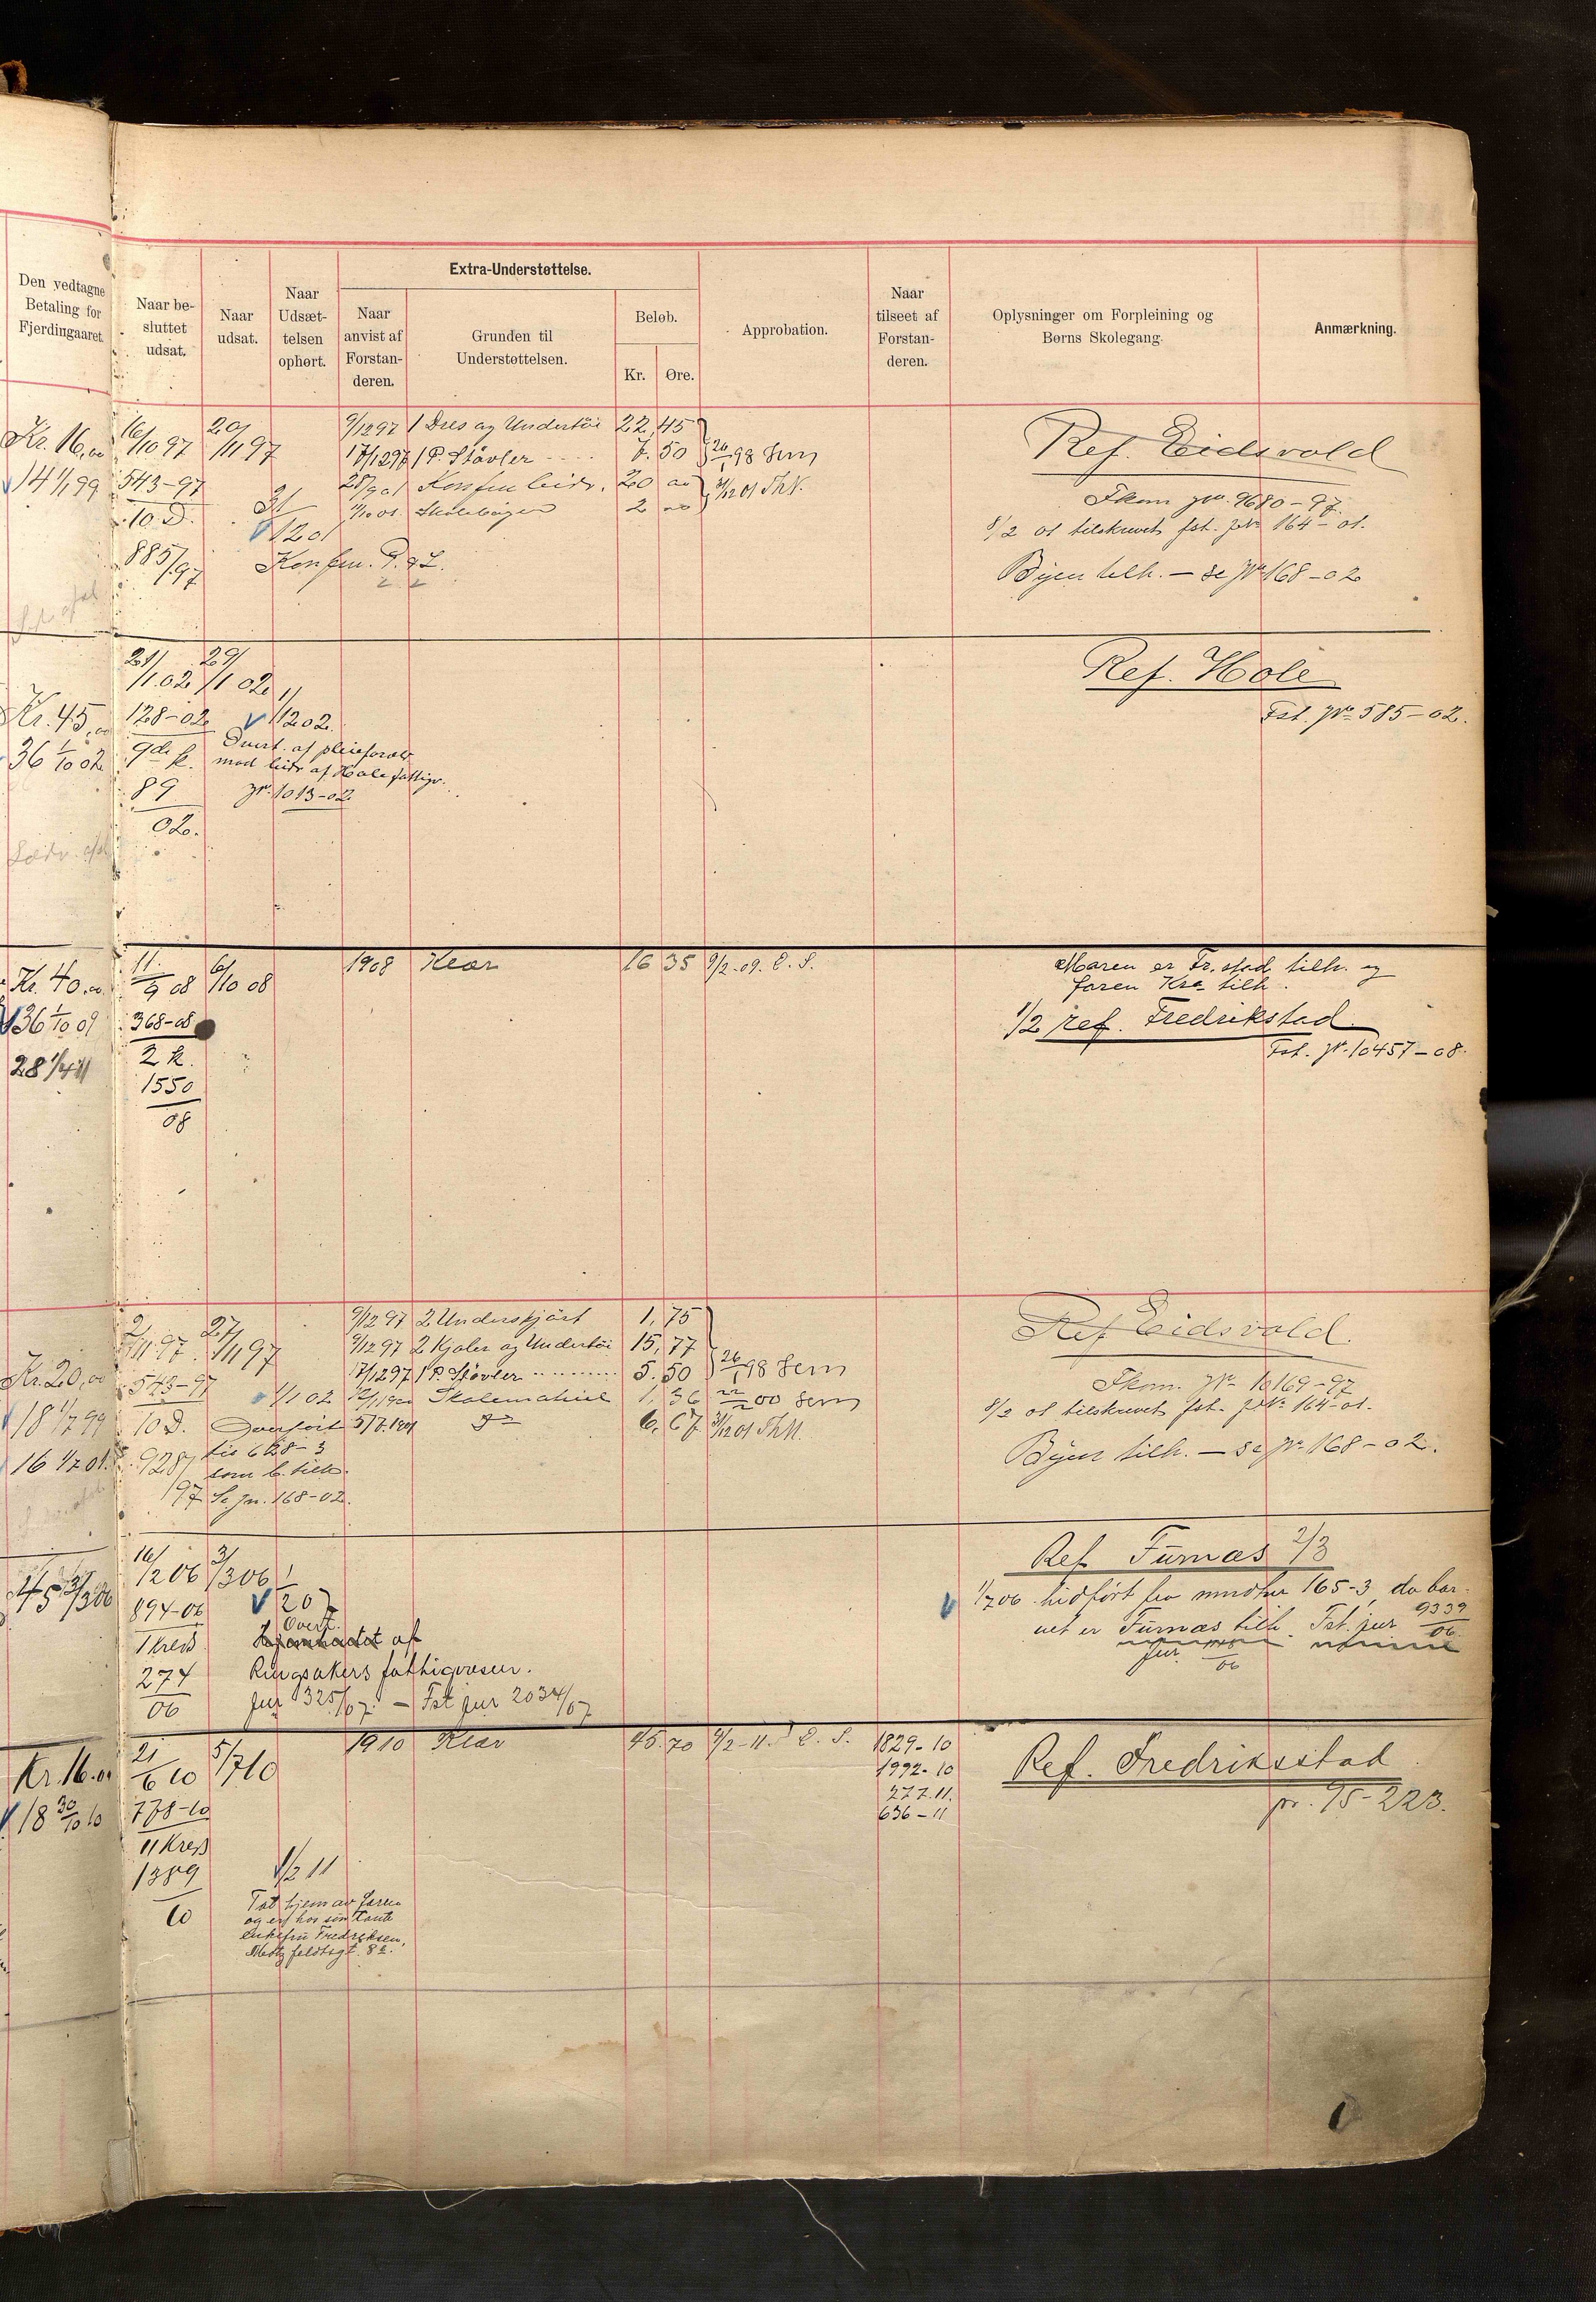 Den vedtagne
Betaling for
Fjerdingaaret.
Naar be-
sluttet
udsat.
Naar
udsat.
Naar
Udsæt-
telsen
ophørt.
Extra-Understøttelse.
Naar
anvist af
Forstan-
deren.
Grunden til
Understøttelsen.
Beløb.
Kr. Øre.
Approbation.
Naar
tilseet af
Forstan-
deren.
Oplysninger om Forpleining og
Børns Skolegang.
Anmærkning.
Kr. 16,00 16/10 97 20/11 97
14 1/1 99 543-97
10 D.
885/97
31/12 01
Konfm.
9/12 97 1 Dres og Undertöi 22,45
17/12 97 1 P. Stövler 7.50 26/1 98 Sem
28/9 01 Konfm bidr. 20 00
11/10 01. Skolebøger 2 00 31/12 01 ThN.
Ref. Eidsvold
Fkom jr. 9680-97.
8/2 01 tilskrevet fst. jr. 164-01.
Byen tilh. - se jr 168-02
Kr. 45,00 21/1 02 29/1 02
36 1/10 02 128-02 1/12 02.
9de k.
89
02.
Overt. af pleieforæld
mod bidr af Hole fattigv.
jr. 1013-02
Ref. Hole
Fst. jr. 585-02.
Kr. 40.00 11/9 08 6/10 08
36 1/10 09 368-08
28 1/4 11 2 k.
1550
08
1908 Klær 16 35 9/2.09. C. S.
Moren er Fr.stad tilh. og
faren Kra tilh.
1/2 ref. Fredrikstad.
Fst. jr. 10457-08.
Kr. 20,00 2/11 97 27/11 97
18 1/7 99 543-97 1/1 02
16 1/7 01. 10 D.
928/97
Overført
til 628-3
som b. tilh.
Se jn. 168-02.
9/12 97 2 Underskjört 1,75
9/12 97 2 Kjoler og Undertöi 15,77
17/12 97 1 P. Stövler 5.50 26/1 98 Sem
12/1 1900 Skolematriel 1,36 00 Sem
5/7.1901 do 6.67 31/12 01 ThN.
Ref Eidsvold.
Fkom. jr. 10169-97
8/2 01 tilskrevet fst. jr. 164-01.
Byen tilh. - se jr. 168-02.
45 3/3 06 16/2 06 3/3 06
894-06
1 kreds
274
06
Overt.
Hjemhentet af
Ringsakers fattigvæsen.
jur 1325/07. - Fst jur 2034/07
Ref Furnæs 2/3
1/7 06 hidført fra 165-3, da bar-
net er Furnæs tilh. Fst. jur 9339
06.
jur
06
Kr. 16.00 21/6 10 5/7 10
18 30/10 10 778-10
11 Kreds
1389
10
1/2 11
Tat hjem av faren
og er hos sin tante
enkefru Fredriksen,
feldtsgt. 82.
1910 Klær 45.70 9/2-11. C. S.
1829-10
1992-10
277.11.
636-11
Ref. Fredriksstad.
pr. 95-223.